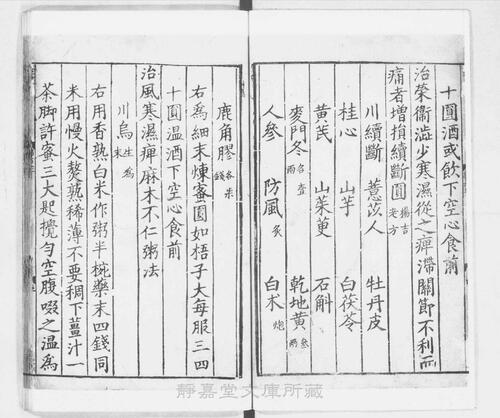 十圓酒或飲下空心食前
治榮衛澁少寒濕從之痺滯關節不利而
痛者增損續斷圓 楊吉老方
川續斷 薏苡人 牡丹皮
桂心 山芋 白茯苓
黃芪 山茱萸 石斛
麥門冬 各壹兩 乾地黃 叁兩
人參 防風 炙 白术 炮
鹿角膠 各柒錢
右爲細末煉蜜圓如梧子大每服三四
十圓温酒下空心食前
治風寒濕痺麻木不仁粥法
川烏 生爲末
右用香熟白米作粥半椀藥末四錢同
米用慢火熬熟稀薄不要稠下薑汁一
茶脚許蜜三大匙攪勻空腹啜之温爲
靜嘉堂文庫所藏